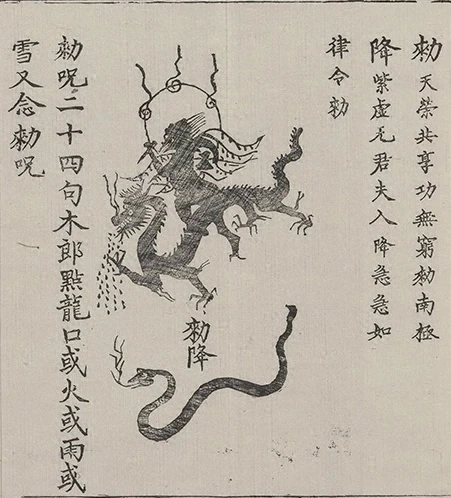 勑天榮共享功無窮勑南極
降紫虛无君夫入降急急如
律令勑
勑降
勑呪二十四句木郎點龍口或火或雨或
雪又念勑呪